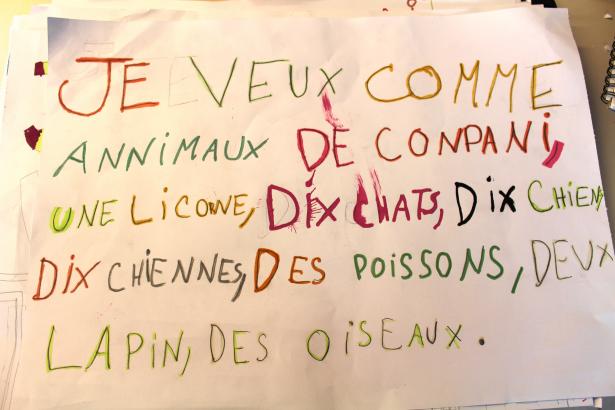 JE VEUX COMME
ANNIMAUX DE CONPANi,
UNE LiCORNE, DiX CHATS, DiX CHiEN,
DiX CHiENNES, DES POiSSONS, DEUX
LAPiN, DES OiSEAUX.